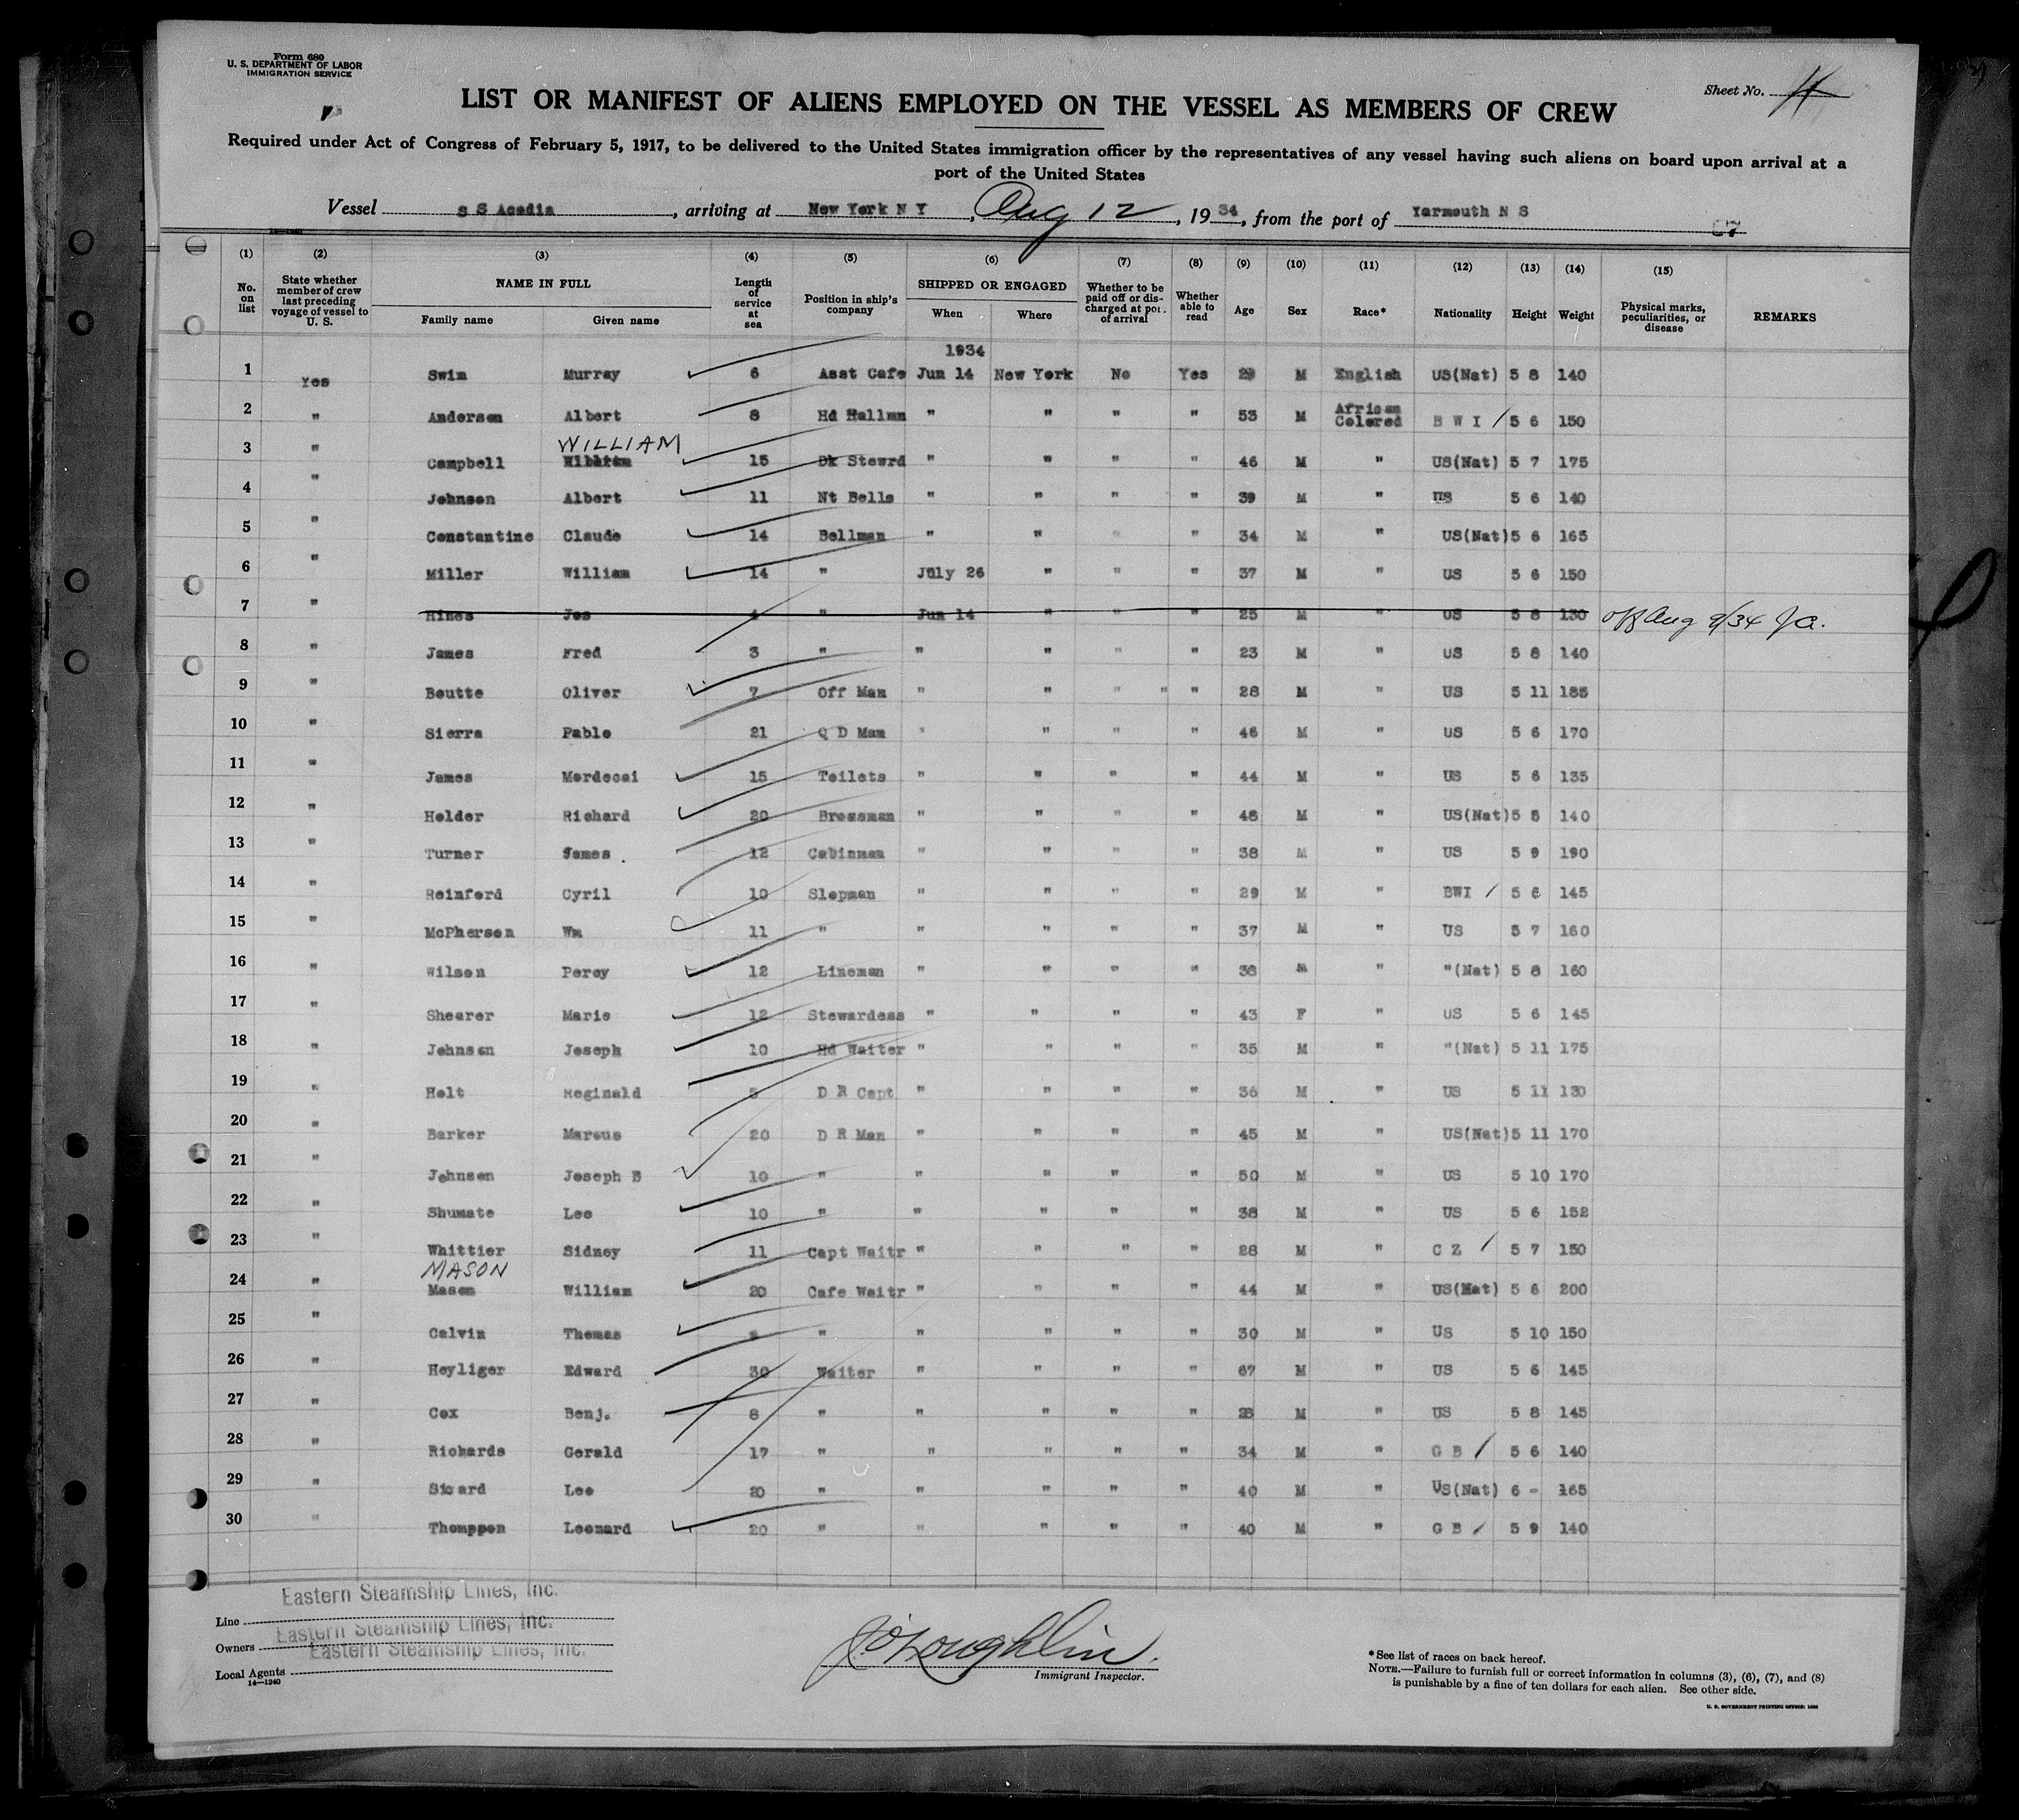 Form 680
U. S. DEPARTMENT OF LABOR
IMMIGRATION SERVICE
Sheet No.
LIST OR MANIFEST OF ALIENS EMPLOYED ON THE VESSEL AS MEMBERS OF CREW
Required under Act of Congress of February 5, 1917, to be delivered to the United States immigration officer by the representatives of any vessel having such aliens on board upon arrival at a
port of the United States
Vessel s S Acadia, arriving at New York N Y, Aug 12, 1934, from the port of Yarmouth N S
(1) (2) (3) (4) (5) (6) (7) (8) (9) (10) (11) (12) (13) (14) (15)
No. on list State whether member of crew last preceding voyage of vessel to U. S. NAME IN FULL Family name Given name Length of service at sea Position in ship's company SHIPPED OR ENGAGED When Where Whether to be paid off or discharged at port of arrival Whether able to read Age Sex Race* Nationality Height Weight Physical marks, peculiarities, or disease REMARKS
1934
1 Yes Swim Murray 6 Asst Cafe Jun 14 New York No Yes 29 M English US(Nat) 5 8 140
2 " Andersen Albert 8 Hd Hallmn " " " " 53 M African Colored B W I / 5 6 150
WILLIAM
3 " Campbell William 15 Dk Stewrd " " " " 46 M " US(Nat) 5 7 175
4 " Johnson Albert 11 Nt Bells " " " " 39 M " US 5 6 140
5 " Constantine Claude 14 Bellman " " " " 34 M " US(Nat) 5 6 165
6 " Miller William 14 " July 26 " " " 37 M " US 5 6 150
7 " Hines Jos 4 " Jun 14 " " " 25 M " US 5 8 130 off Aug 9/34 Ja.
8 " James Fred 3 " " " " " 23 M " US 5 8 140
9 " Boutte Oliver 7 Off Man " " " " " 28 M " US 5 11 185
10 " Sierra Pablo 21 Q D Man " " " " 46 M " US 5 6 170
11 " James Mordecai 15 Toilets " " " " 44 M " US 5 6 135
12 " Holder Richard 20 Brossman " " " " 48 M " US(Nat) 5 8 140
13 " Turner James 12 Cabinman " " " " 38 M " US 5 9 190
14 " Reinford Cyril 10 Slopman " " " " 29 M " BWI / 5 6 145
15 " McPherson Wm 11 " " " " " 37 M " US 5 7 160
16 " Wilson Percy 12 Lineman " " " " 38 M " "(Nat) 5 8 160
17 " Shearer Marie 12 Stewardess " " " " 43 F " US 5 6 145
18 " Johnson Joseph 10 Hd Waiter " " " " 35 M " "(Nat) 5 11 175
19 " Holt Reginald 5 D R Capt " " " " 36 M " US 5 11 130
20 " Barker Marcus 20 D R Man " " " " 45 M " US(Nat) 5 11 170
21 " Johnson Joseph B 10 " " " " " 50 M " US 5 10 170
22 " Shumate Lee 10 " " " " " 38 M " US 5 6 152
23 " Whittier Sidney 11 Capt Waitr " " " " 28 M " C Z / 5 7 150
MASON
24 " Mason William 20 Cafe Waitr " " " " 44 M " US(Nat) 5 6 200
25 " Calvin Thomas " " " " " 30 M " US 5 10 150
26 " Heyliger Edward 30 Waiter " " " " 67 M " US 5 6 145
27 " Cox Benj. 8 " " " " " 28 M " US 5 8 145
28 " Richards Gerald 17 " " " " " 34 M " G B / 5 6 140
29 " Sicard Leo 20 " " " " " 40 M " US(Nat) 6 - 165
30 " Thomppon Leonard 20 " " " " " 40 M " G B / 5 9 140
Line Eastern Steamship Lines, Inc.
Owners Eastern Steamship Lines, Inc.
Local Agents Eastern Steamship Lines, Inc.
14—1240
J. O'Loughlin.
Immigrant Inspector.
*See list of races on back hereof.
NOTE.—Failure to furnish full or correct information in columns (3), (6), (7), and (8)
is punishable by a fine of ten dollars for each alien. See other side.